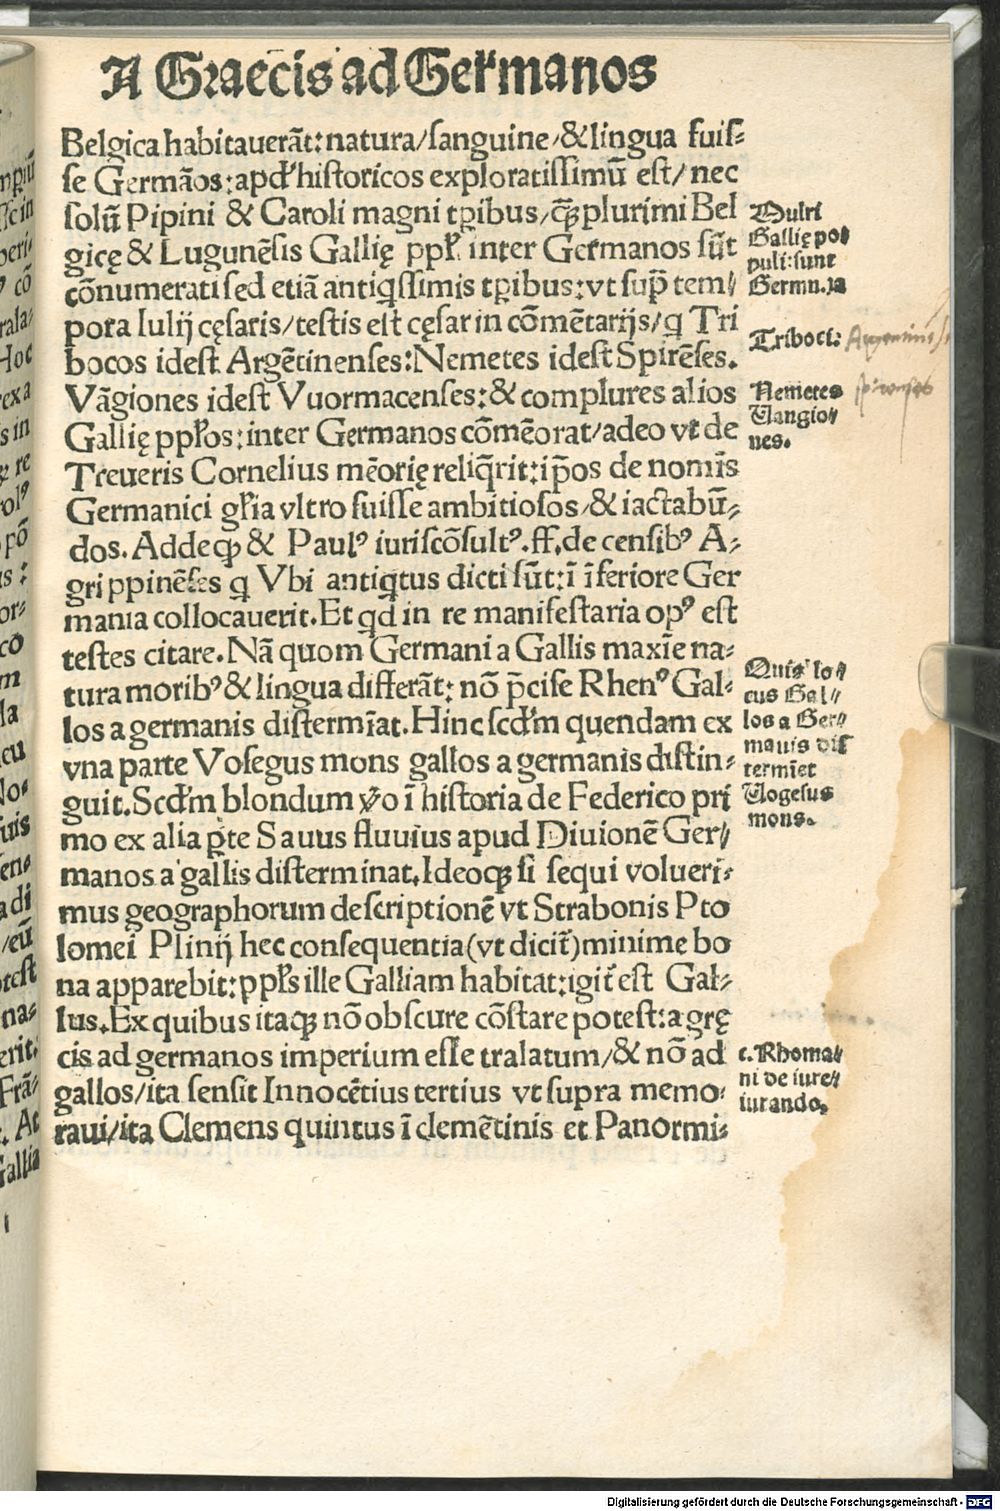 A Graecis ad Germanos
Belgica habitauerāt: natura/ſanguine/&lingua fuiſ-
ſe Germāos: apd' hiſtoricos exploratiſſimū eſt/ nec
ſolū Pipini & Caroli magni tpibus/ plurimi Bel
gicę & Lugunēſis Gallię ppl'i inter Germanos ſūt
cōnumerati ſed etiā antiqſſimis tpibus: vt ſup tem/
pora Iulij cęſaris/ teſtis eſt cęſar in cōmētarijs/ q Tri
bocos ideſt Argētinenſes: Nemetes ideſt Spirēſes.
Vāgiones ideſt Vuormacenſes: & complures alios
Gallię ppl'os: inter Germanos cōmēorat/ adeo vt de
Treueris Cornelius mēorię reliq̄rit: ip̄os de nomīs
Germanici gl'ia vltro fuiſſe ambitioſos/ & iactabū-
dos. Addeq; & Paul⁹ iuriſcōſult⁹. ff. de cenſib⁹ A-
grippinēſes q Vbi antiqtus dicti ſūt: ī īferiore Ger
mania collocauerit. Et qd in re manifeſtaria op⁹ eſt
teſtes citare. Nā quom Germani a Gallis maxīe na-
tura morib⁹ & lingua differāt: nō p̄ciſe Rhen⁹ Gal-
los a germanis diſtermīat. Hinc ſcd'm quendam ex
vna parte Voſegus mons gallos a germanis diſtin-
guit. Scd'm blondum ṽo ī hiſtoria de Federico pri
mo ex alia pte Sauus fluuius apud Diuionē Ger/
manos a gallis diſterminat. Ideoq; ſi ſequi volueri-
mus geographorum deſcriptionē vt Strabonis Pto
lomei Plinij hec conſequentia (vt dicit̄) minime bo
na apparebit: ppl's ille Galliam habitat: igit̄ eſt Gal-
lus. Ex quibus itaq; nō obſcure cōſtare poteſt: a grę
cis ad germanos imperium eſſe tralatum/ & nō ad
gallos/ ita ſenſit Innocētius tertius vt ſupra memo-
raui/ ita Clemens quintus ī clemētinis et Panormi-
Gallię po/
puli: sunt
Triboci:
Nemetes
Vangio/
nes.
Quis lo/
cus Gal/
los a Ger/
manis diſ
termīet
Vogesus
mons.
c. Rhoma/
ni de iure/
iurando.
Digitalisierung gefördert durch die Deutsche Forschungsgemeinschaft - DFG